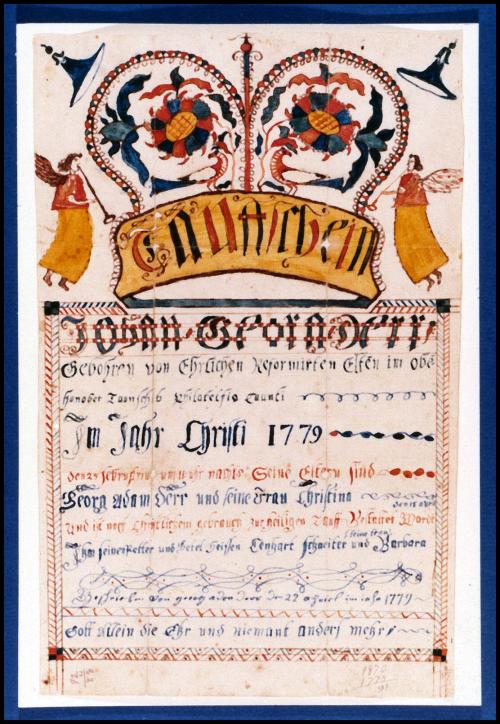 Tauffschein
Johan Georg Derr
Gebohren von Ehrlichen Reformirten Elten im obe
hanober Taunschib Philatelfio Caunti
Im Jahr Christi 1779
den 25 febru um uhr nachts Seine Eltern sind
Georg Adam Derr und seine Frau Christina
und ist nach Christlichem gebrauch zur heiligen Tauff
Ihm seiner getel heisen Lenhart Schneiter und Barbara
seine frau
Geschrieben von georg adam derr den 22 im jahr 1779
Gott Allein die Ehr und niemant anders mehr